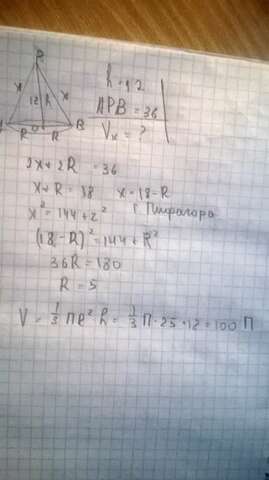 P
h = 12
x 12 h x
APB = 36
A R O R B
Vк = ?
2x + 2R = 36
x + R = 18 x = 18 - R
x² = 144 + R² т Пифагора
(18 - R)² = 144 + R²
36R = 180
R = 5
V = 1/3 ПR² h = 1/3 П · 25 · 12 = 100 П